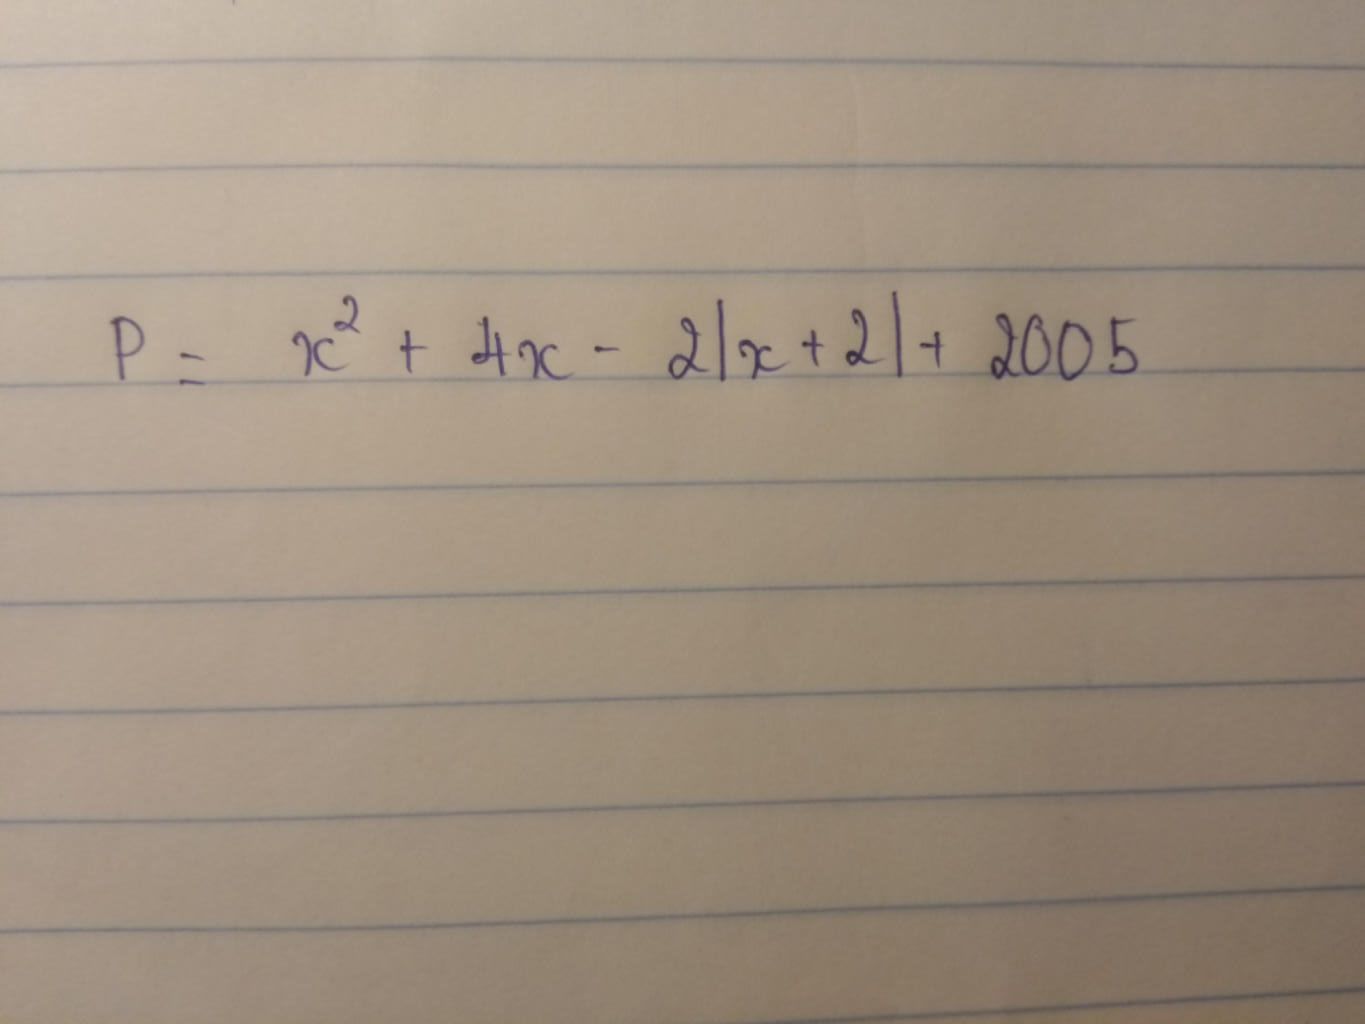 P = x² + 4x - 2|x+2| + 2005